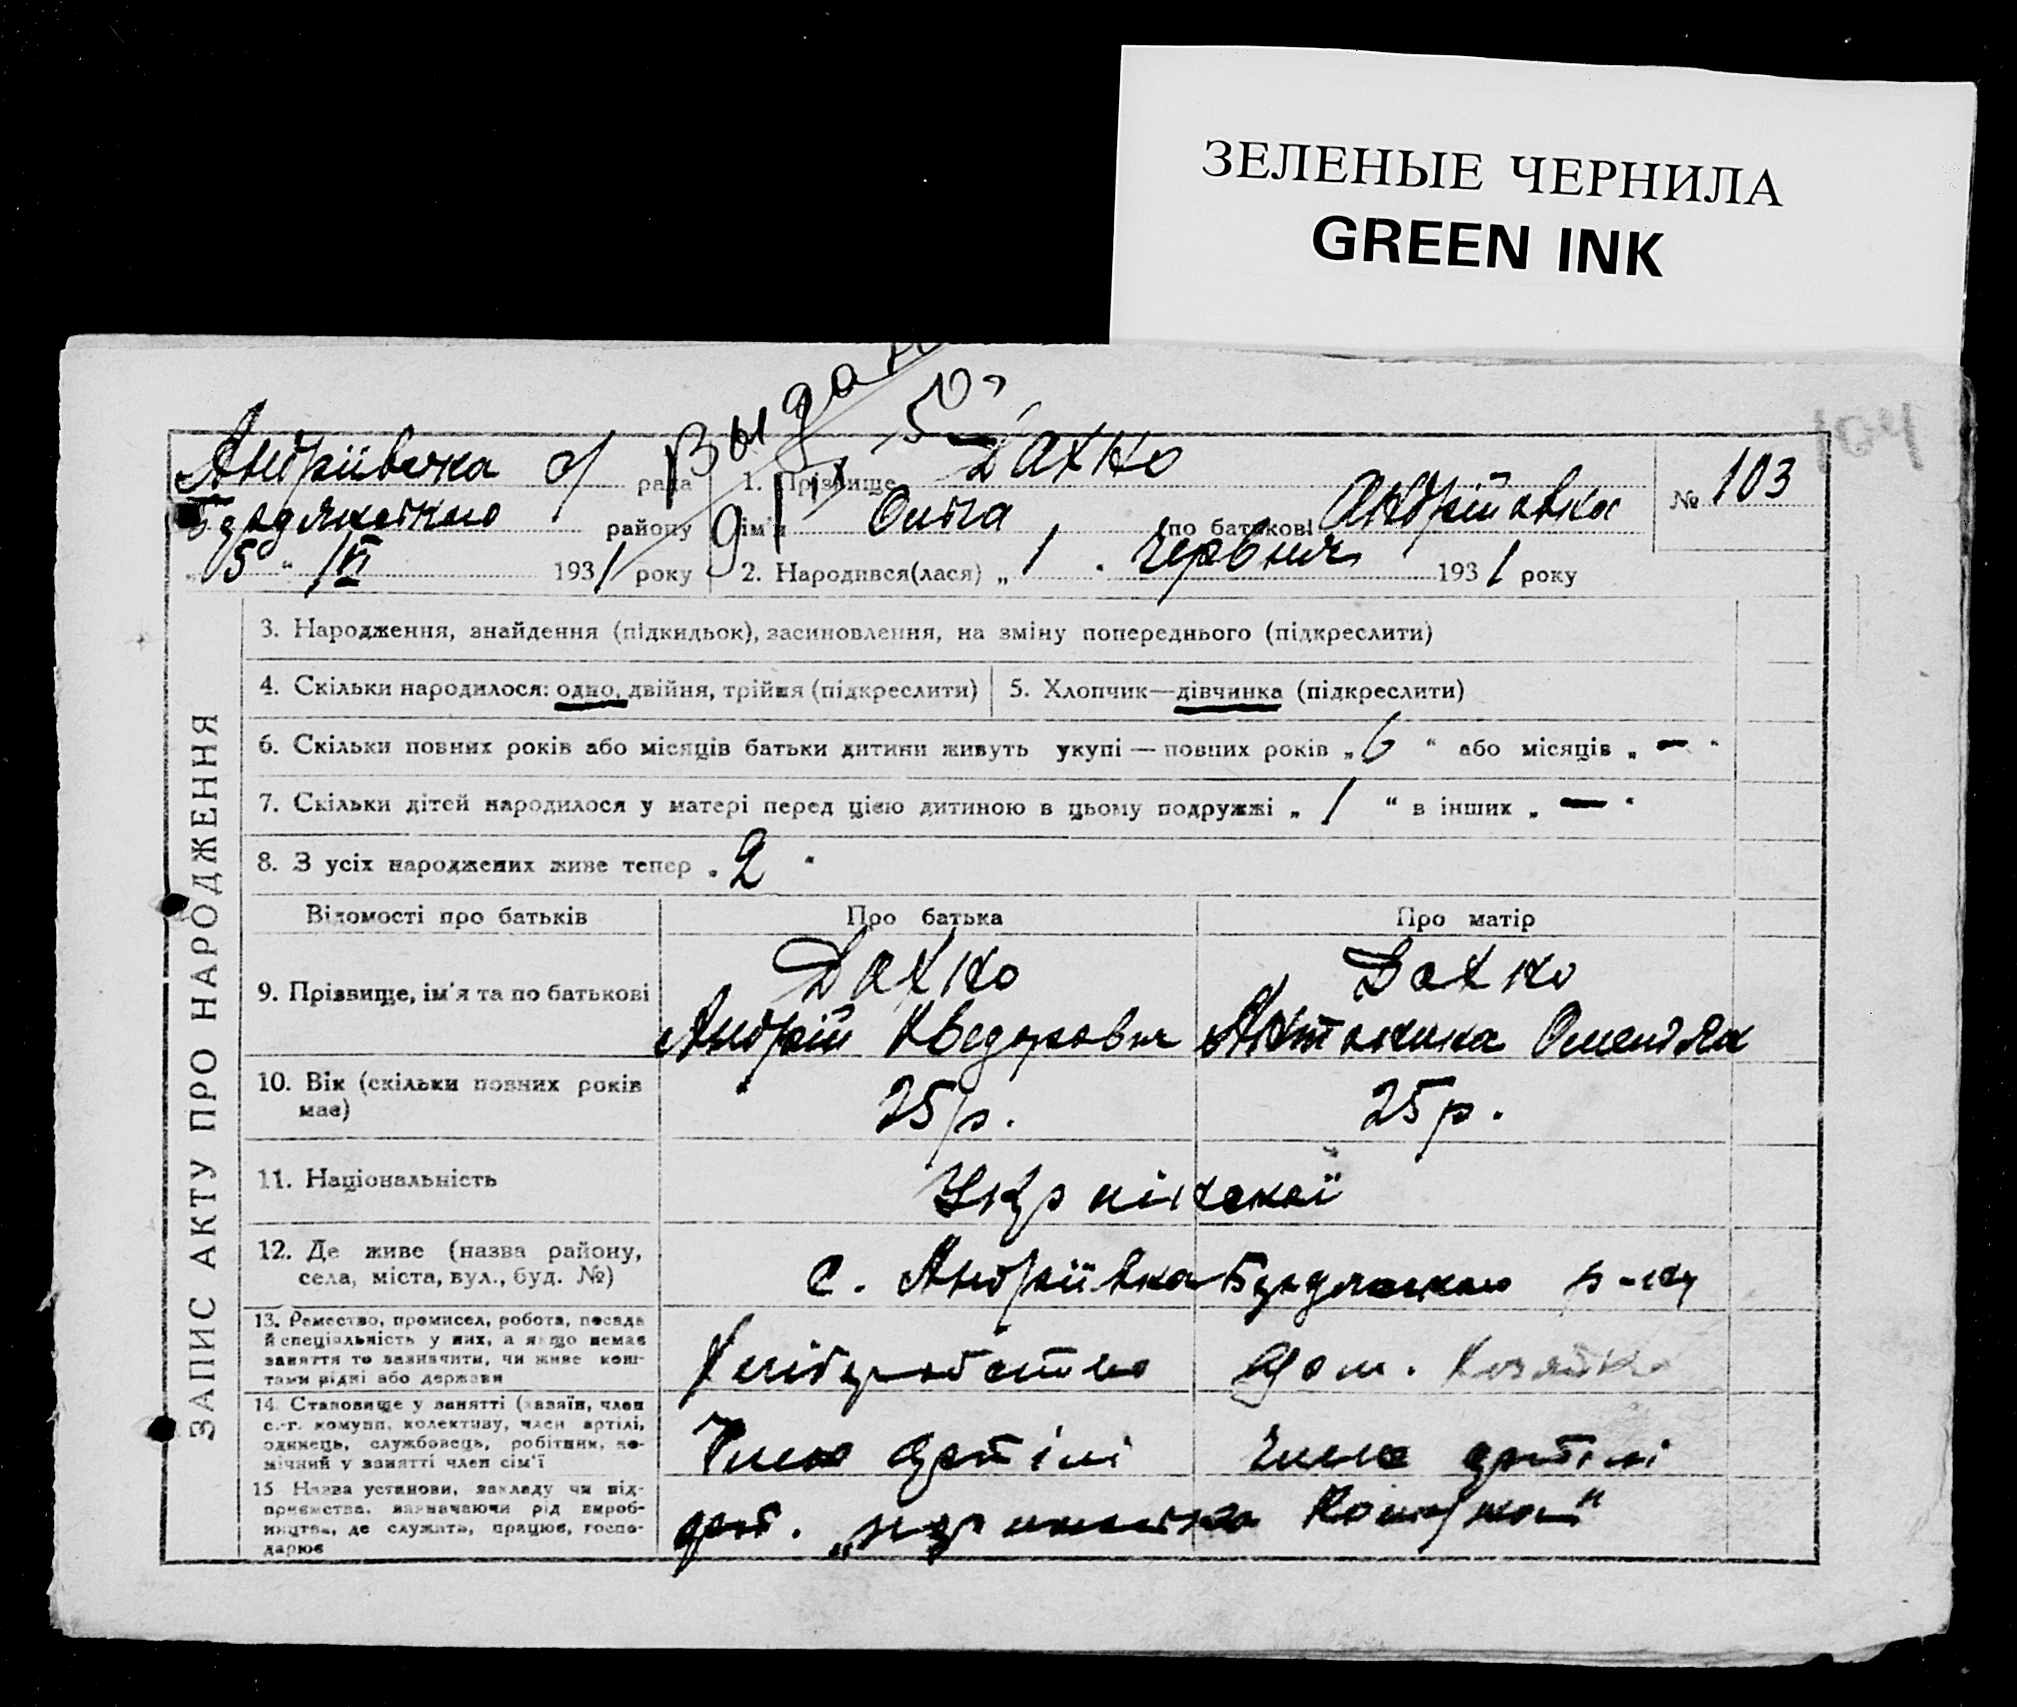 ЗЕЛЕНЫЕ ЧЕРНИЛА
GREEN INK
104
50
Андріївська с/ рада
району
"5" /VI 1931 року
1. Прізвище Дахно
ім'я Ольга по батькові Андріївна
2. Народився(лася) „1" Червня 1931 року
№ 103
ЗАПИС АКТУ ПРО НАРОДЖЕННЯ
3. Народження, знайдення (підкидьок), засиновлення, на зміну попереднього (підкреслити)
4. Скільки народилося: одно, двійня, трійня (підкреслити)
5. Хлопчик—дівчинка (підкреслити)
6. Скільки повних років або місяців батьки дитини живуть укупі — повних років „6" або місяців „—"
7. Скільки дітей народилося у матері перед цією дитиною в цьому подружжі „1" в інших „—"
8. З усіх народжених живе тепер „2"
Відомості про батьків Про батька Про матір
9. Прізвище, ім'я та по батькові
Дахно
Андрій
Дахно
Антонина
10. Вік (скільки повних років
має)
25 р.
25 р.
11. Національність
12. Де живе (назва району,
села, міста, вул., буд. №)
с. Андріївка р-ну
13. Ремество, промисел, робота, посада
й спеціальність у них, а якщо немає
заняття то зазначити, чи живе кош-
тами рідні або держави
Хліборобство
дом. хозяйка
14. Становище у занятті (хазяїн, член
с.-г. комуни, колективу, член артілі,
одинець, службовець, робітник, по-
мічний у занятті член сім'ї
Член артілі
член артілі
15. Назва установи, закладу чи під-
приємства, зазначаючи рід вироб-
ництва, де служить, працює, госпо-
дарює
арт.